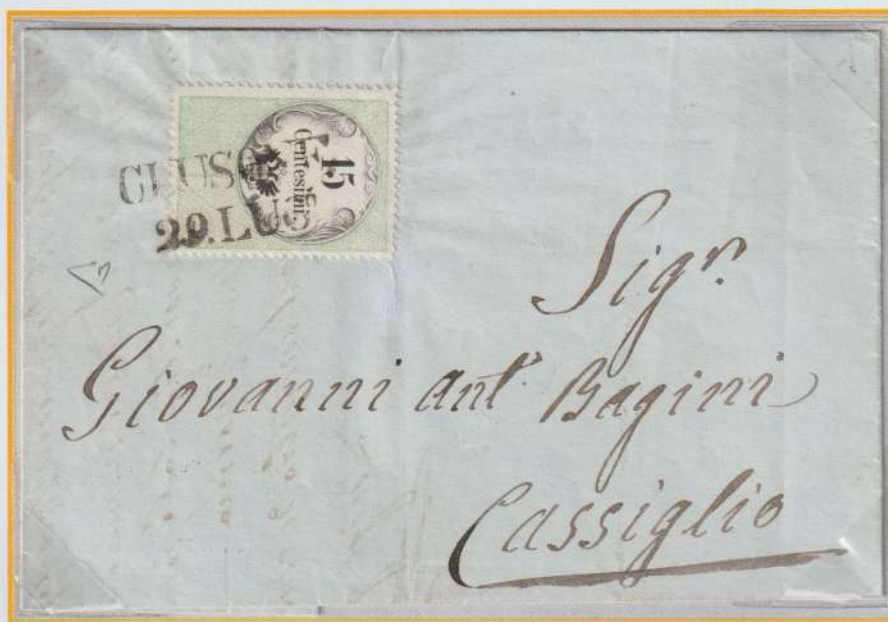 15
Centesimi
CLUSO
29.LUG
Sigr.
Giovanni ant. Bagini
Cassiglio